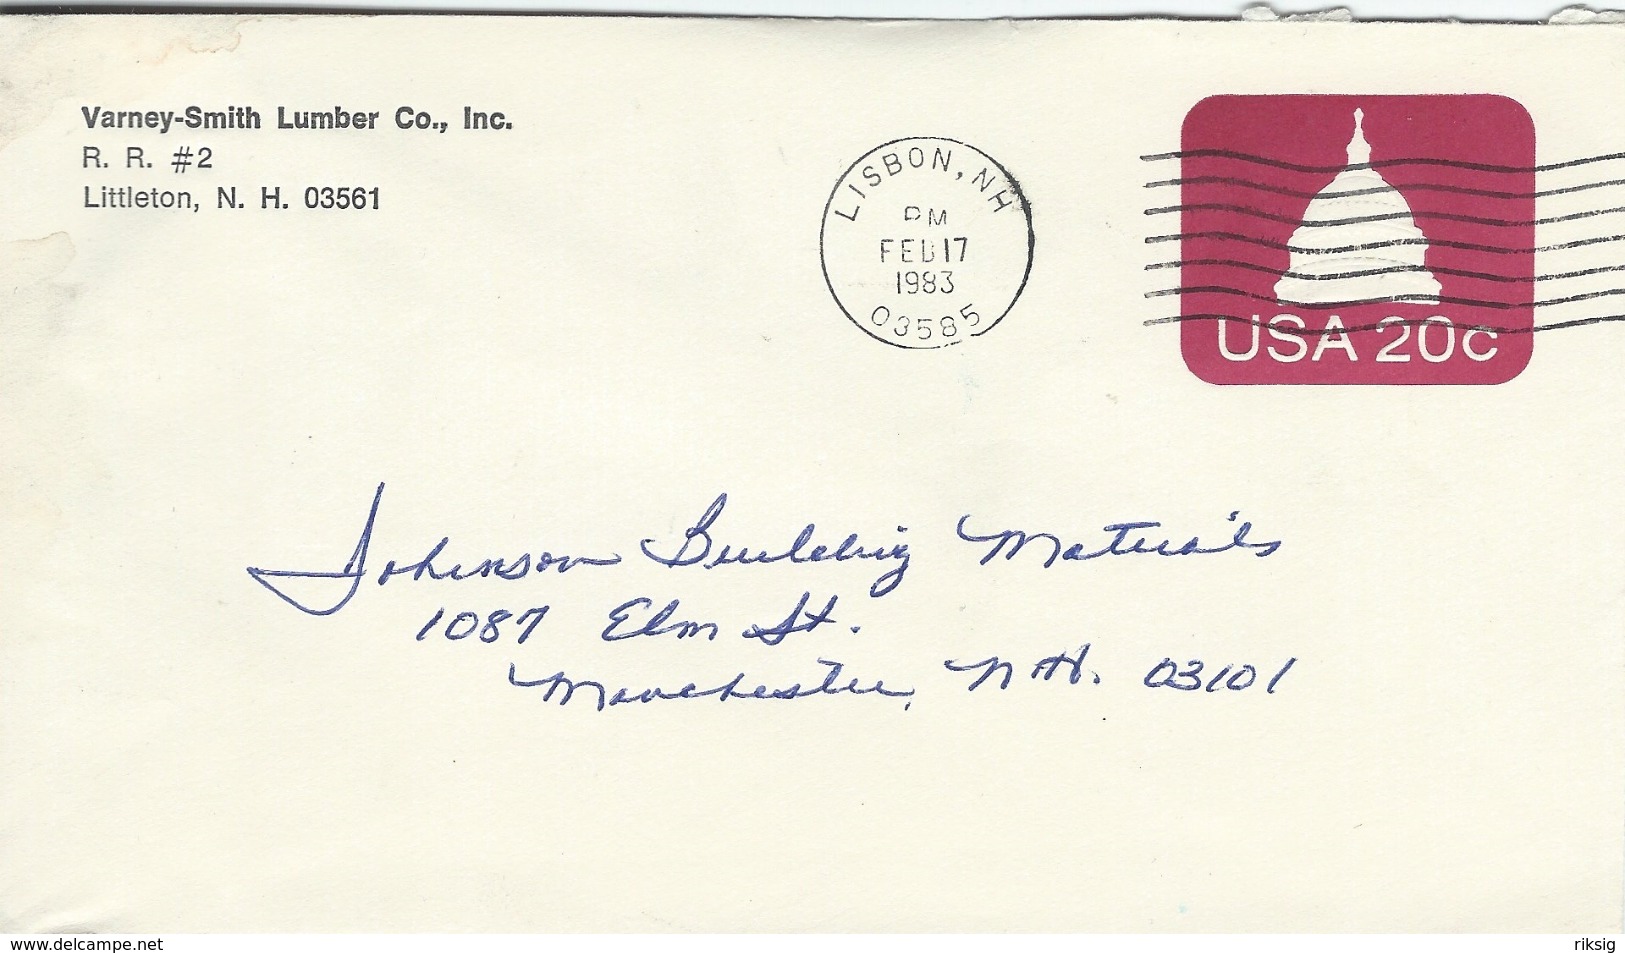 Varney-Smith Lumber Co., Inc.
R. R. #2
Littleton, N. H. 03561
LISBON, NH
PM
FEB 17
1983
03585
USA 20c
Johnson Building Materials
1087 Elm St.
Manchester, N.H. 03101
www.delcampe.net
riksig